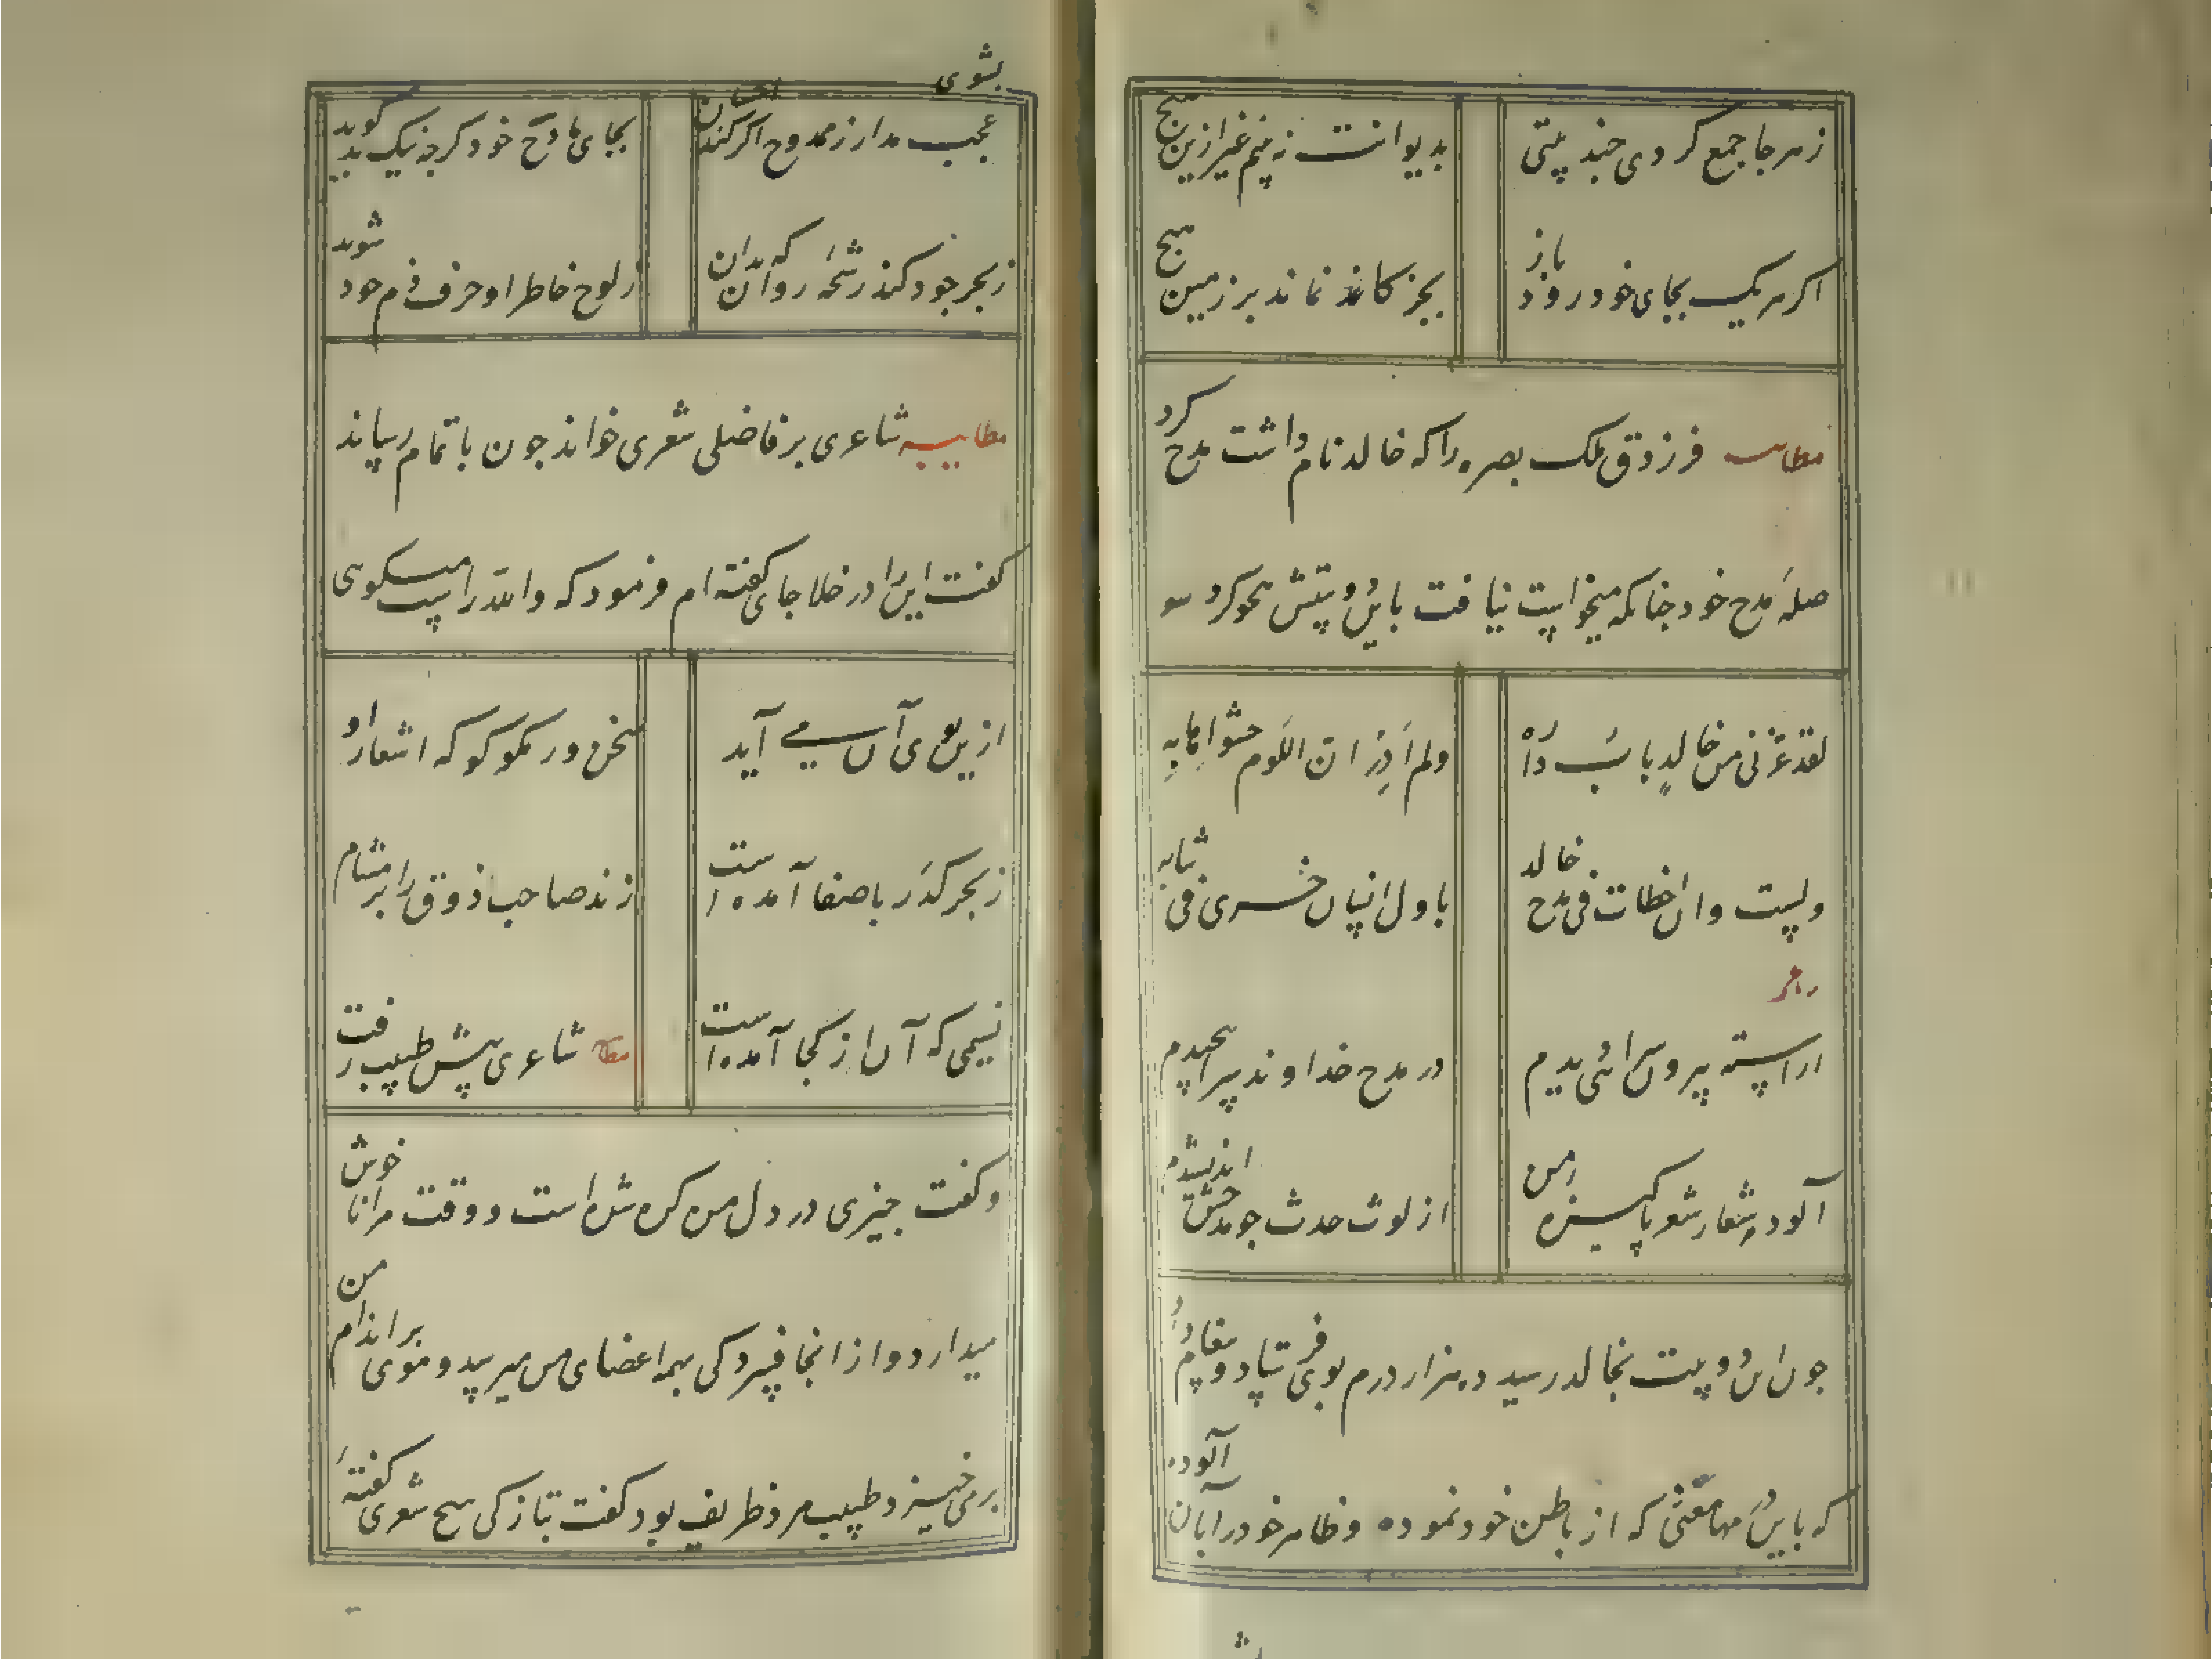 ز هر جا جمع کردی چند بیتی
بدیوانت نه بینم غیر ازین هیچ
اگر هر یک بجای خود رود باز
بجز کاغذ نماند بر زمین هیچ
مطایبه فرزدق ملک بصره را که خالد نام داشت مدح کرد
صلهٔ مدح خود چنانکه میخواست نیافت باین دو بیتش هجو کرد
لقد غرنی من خالد باب داره
ولم ادر ان اللوم حشو اهابه
ولست وان اخطات فی مدح خالد
باول انسان خری فی ثیابه
اراسته بیرون سرائی دیدم
در مدح خداوند
آلوده شعار شعر پاکیزه من
از لوث حدث جو مدحش اندیشدم
جون این دو بیت بخالد رسید ده هزار درم بوی فرستاد و پیغام داد
که باین مهامعنی که از باطن خود نموده و ظاهر خود را بان آلوده
بشوی
عجب مدار ز ممدوح اگر کند احسان
بجای مادح خود گرچه نیک بد گوید
ز بحر جود کند رشحهٔ روان که بدان
ز لوح خاطر او حرف ذم خود شوید
مطایبه شاعری بر فاضلی شعری خواند جون باتمام رساند
گفت این را در خلا جای گفته ام فرمود که والله راست میگوی
ازین بوی آن می آید
سخن ور مگو گو که اشعار او
ز بحر کدر باصفا آمده است
زند صاحب ذوق را بر مشام
نسیمی که آن از کجا آمده است
مطایبه شاعری پیش طبیب رفت
و گفت چیزی در دل من گره شده است و وقت مرا ناخوش
میدارد و از انجا فسردگی بهمه اعضای من میرسد و موی بر اندام من
بر می خیزد طبیب مرد ظریف بود گفت بتازگی هیچ شعری گفتهٔ